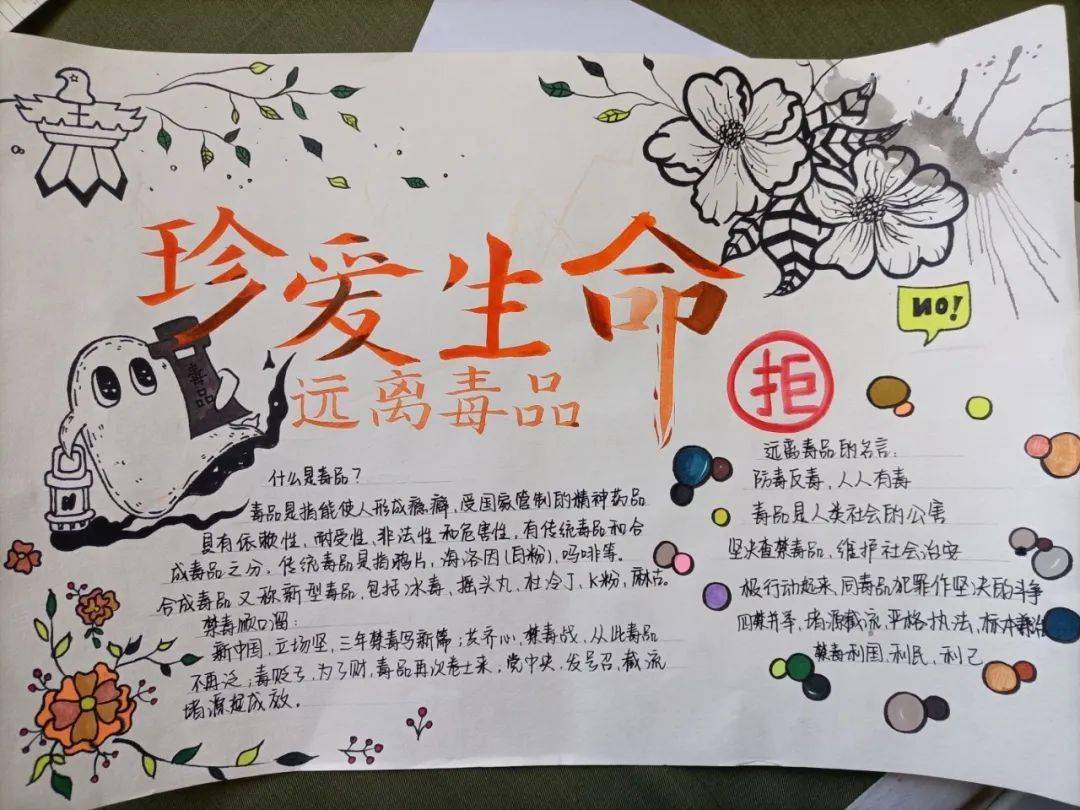 珍爱生命
远离毒品
毒品
NO!
拒
什么是毒品？
毒品是指能使人形成瘾癖，受国家管制的精神药品
具有依赖性，耐受性，非法性和危害性，有传统毒品和合
成毒品之分，传统毒品是指鸦片，海洛因（白粉），吗啡等。
合成毒品又称新型毒品，包括冰毒，摇头丸，杜冷丁，K粉，麻古。
禁毒顺口溜：
新中国，立场坚，三年禁毒写新篇；共齐心，禁毒战，从此毒品
不再泛；毒贩子，为了财，毒品再次卷土来，党中央，发号召，截流
堵源起成效。
远离毒品的名言：
防毒反毒，人人有毒
毒品是人类社会的公害
坚决查禁毒品，维护社会治安
极行动起来，同毒品犯罪作坚决的斗争
四禁并举，堵源截流，严格执法，标本兼治
禁毒利国，利民，利己